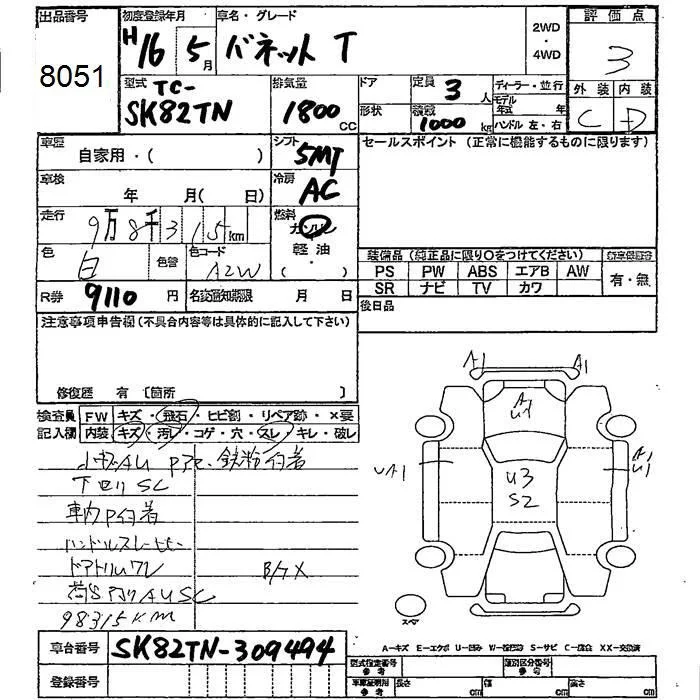 出品番号 初度登録年月 車名・グレード 2WD・4WD 評価点
8051 H16 5月 バネット T 3
型式 TC-SK82TN 排気量 1800cc ドア 定員 3人 ディーラー・並行 外装 内装
形状 積載 1000kg モデル年式 年 ハンドル 左・右 C D
車歴 自家用・( ) シフト 5MT セールスポイント (正常に機能するものに限ります)
車検 年 月( 日) 冷房 AC
走行 9万8千315km 燃料 ガソリン
色 白 色替 色コード A2W 軽油・( )
装備品 (純正品に限り○をつけてください)
PS PW ABS エアB AW 有・無
SR ナビ TV カワ
R券 9110円 名変通知期限 月 日 後日品
注意事項申告欄(不具合内容等は具体的に記入して下さい)
修復歴 有 〔箇所 〕
検査員 FW キズ・飛石・ヒビ割・リペア跡・×要
記入欄 内装 キズ・汚レ・コゲ・穴・スレ・キレ・破レ
小キズAU Pアセ、鉄粉付着
下回りSC
車内P付着
ハンドルスレ
ドアトリムワレ
AUSC
98315KM
A1 A1
A1
U1
UA1 A1
U1
U3
S2
スペア
A-キズ E-エクボ U-凹み W-補修跡 S-サビ C-腐食 XX-交換済
車台番号 SK82TN-309494
登録番号
型式指定番号 参考 類別区分番号 参考
車庫証明用 参考 長さ cm 幅 cm 高さ cm